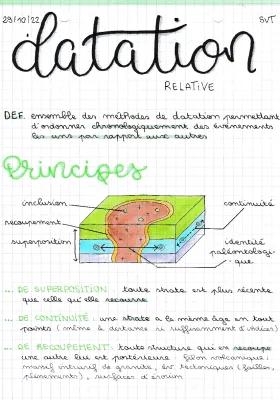 29/10/22
SVT
datation
RELATIVE
DEF. ensemble des méthodes de datation permettant
d'ordonner chronologiquement des événements
les uns par rapport aux autres
Principes
inclusion
continuité
recoupement
superposition
identité
paléontologi-
que
... DE SUPERPOSITION : toute strate est plus récente
que celle qu'elle recouvre
... DE CONTINUITÉ : une strate a le même âge en tout
points (même à distance si suffisamment d'indices)
... DE RECOUPEMENT: toute structure qui en recoupe
une autre lui est postérieure : filon volcanique,
massif intrusif de granite, év tectoniques (failles,
plissements), surfaces d'érosion